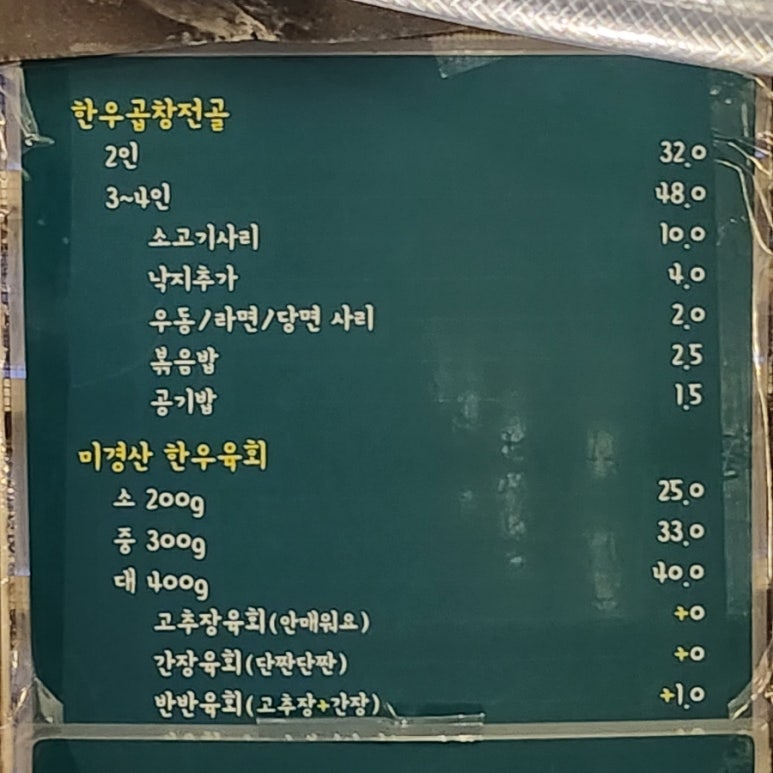 한우곱창전골
2인 32.0
3~4인 48.0
소고기사리 10.0
낙지추가 4.0
우동/라면/당면 사리 2.0
볶음밥 2.5
공기밥 1.5
미경산 한우육회
소 200g 25.0
중 300g 33.0
대 400g 40.0
고추장육회(안매워요) +0
간장육회(단짠단짠) +0
반반육회(고추장+간장) +1.0